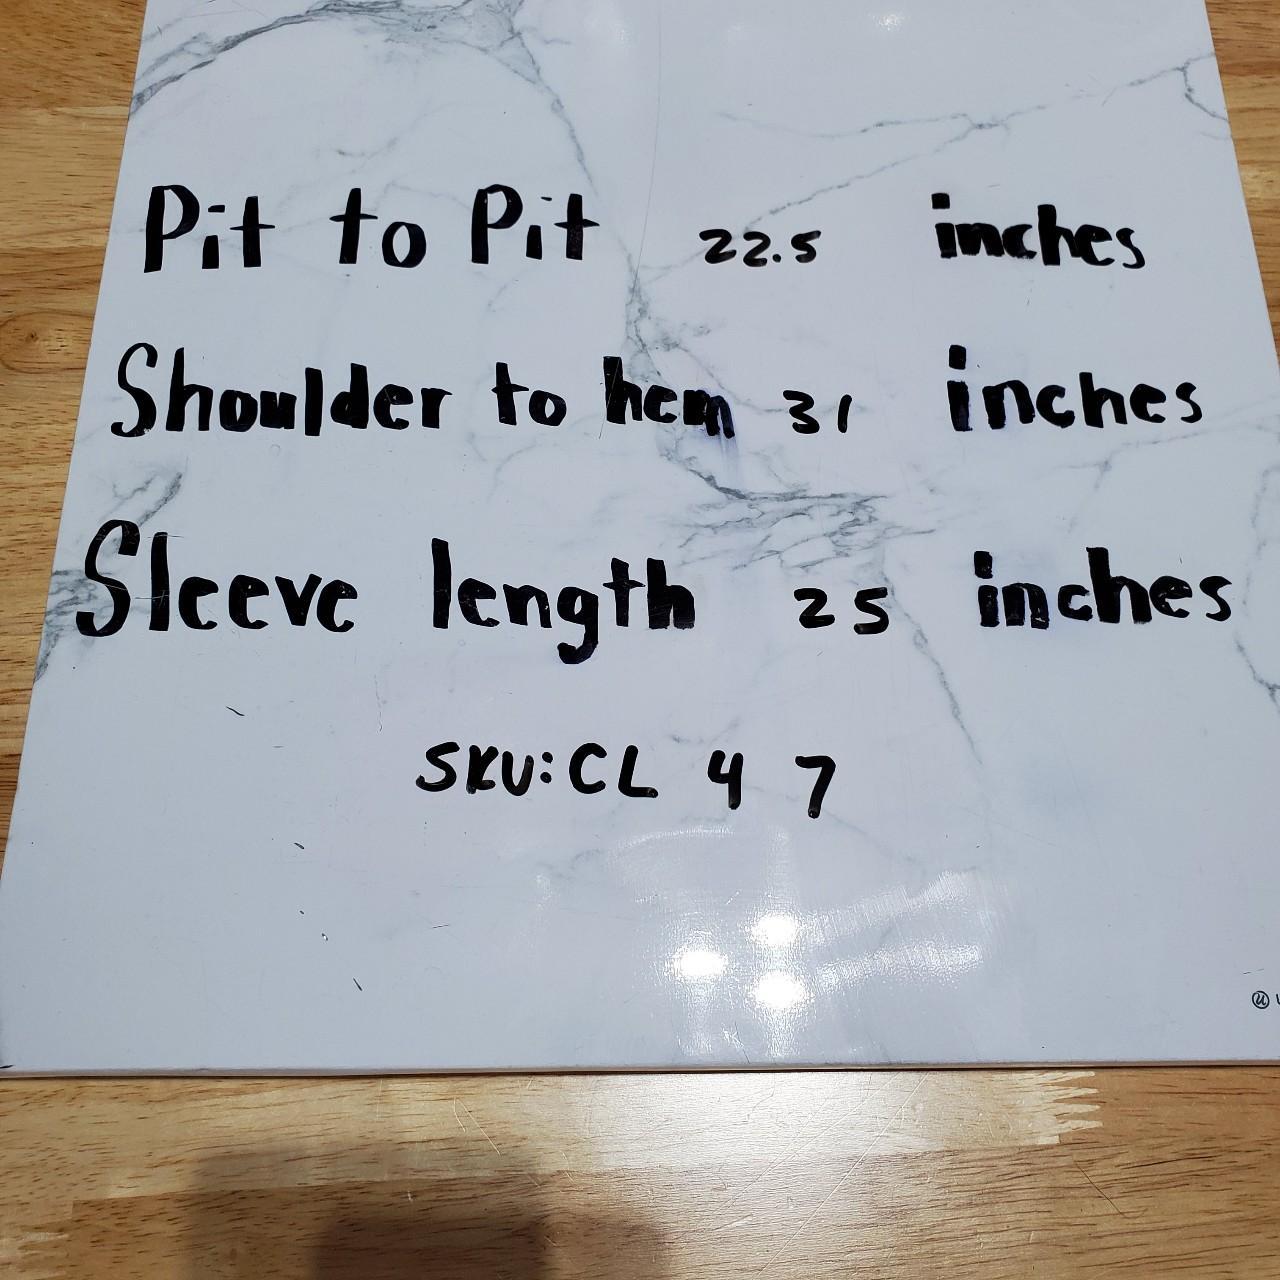 Pit to Pit 22.5 inches
Shoulder to hem 31 inches
Sleeve length 25 inches
SKU: CL 4 7